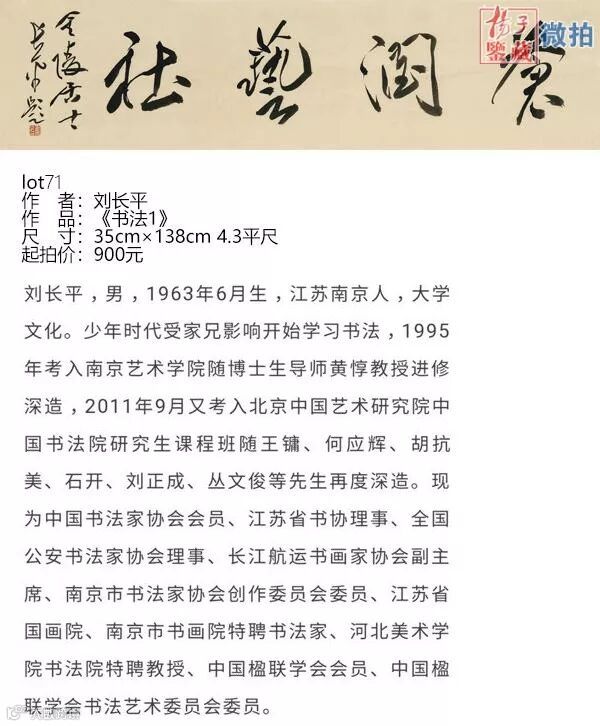 金陵居士
长平题
苍润艺社
扬子
鉴藏
微拍
lot71
作 者：刘长平
作 品：《书法1》
尺 寸：35cm×138cm 4.3平尺
起拍价：900元
刘长平，男，1963年6月生，江苏南京人，大学
文化。少年时代受家兄影响开始学习书法，1995
年考入南京艺术学院随博士生导师黄惇教授进修
深造，2011年9月又考入北京中国艺术研究院中
国书法院研究生课程班随王镛、何应辉、胡抗
美、石开、刘正成、丛文俊等先生再度深造。现
为中国书法家协会会员、江苏省书协理事、全国
公安书法家协会理事、长江航运书画家协会副主
席、南京市书法家协会创作委员会委员、江苏省
国画院、南京市书画院特聘书法家、河北美术学
院书法院特聘教授、中国楹联学会会员、中国楹
联学会书法艺术委员会委员。